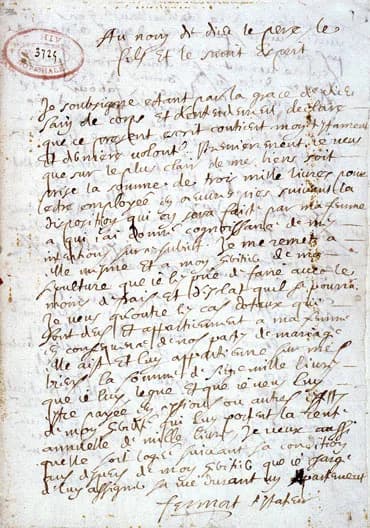 3725
Au nom de dieu le pere le
fils et le sainct esprit
Je soubsigne estant par la grace de dieu
sain de corps et dentendement declare
que ce present escrit contient mon testament
et derniere volonté Premierement je veus
que sur le plus clair de mes biens soit
prise la somme de trois mille livres pour
estre employée en oeuvres pies suivant la
disposition qui en sera fait par ma femme
a qui jai donné cognoissance de mes
intentions sur ce subiet Je me remets a
elle mesme et a mon heritier de ma
sepulture que je les prie de faire avec le
moins de frais et d'esclat quil se pourra
Je veus qu'outre les cas dotaux qui
sont deus et appartienent a ma femme
en consequence de nos pactes de mariage
elle ait et luy appartiene sur mes
biens la somme de mille livres
que je luy legue et que je veus luy
estre payée en ou autres effets
de mon heritié qui luy portent la rente
annuelle de mille livres Je veux aussi
quelle soit logee suivant sa condition
aus depens de mon heritié que je charge
de luy assigner sa vie durant un apartement
Fermat testateur